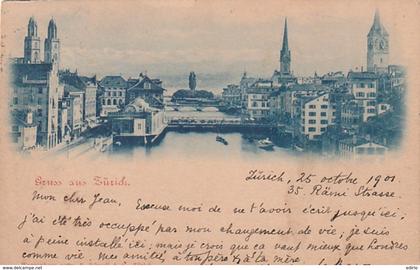 Gruss aus Zürich.
Zürich, 25 octobre 1901
35. Rämi Strasse.
Mon cher Jean, Excuse moi de ne t'avoir écrit jusqu'ici,
j'ai été très occupé par mon changement de vie; je suis
à peine installé ici; mais je crois que ça vaut mieux que Londres
comme vie. Mes amitiés à ton père & à ta mère.